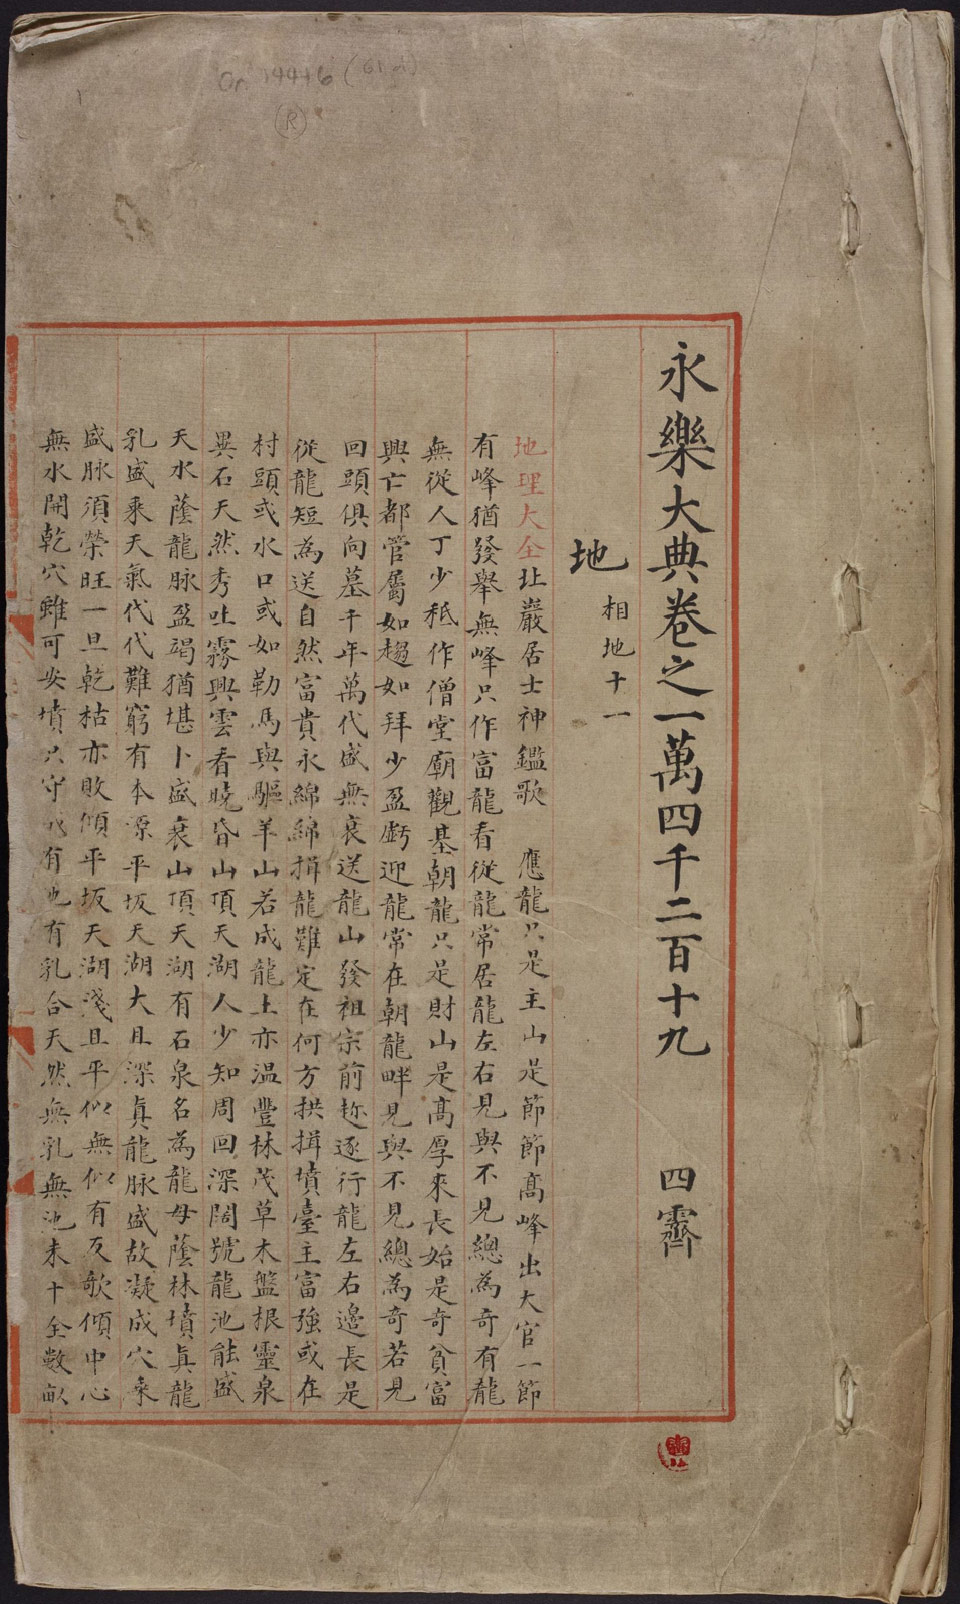 Or. 14446
(R)
永樂大典卷之一萬四千二百十九 四霽
地 相地十一
地理大全北巖居士神鑑歌 應龍只是主山是節節髙峰出大官一節
有峰猶發舉無峰只作富龍看從龍常居龍左右見與不見總為奇有龍
無從人丁少秪作僧堂廟觀基朝龍只是財山是髙厚來長始是奇貧富
興亡都管屬如趨如拜少盈虧迎龍常在朝龍畔見與不見總為奇若見
回頭俱向墓千年萬代盛無衰送龍山發祖宗前趂逐行龍左右邊長是
從龍短為送自然富貴永綿綿揖龍難定在何方拱揖墳臺主富強或在
村頭或水口或如勒馬與驅羊山若成龍土亦温豐林茂草木盤根靈泉
異石天然秀吐霧興雲看曉昏山頂天湖人少知周回深闊號龍池能盛
天水蔭龍脉盈竭猶堪卜盛衰山頂天湖有石泉名為龍母蔭林墳真龍
乳盛乘天氣代代難窮有本源平坂天湖大且深真龍脉盛故凝成穴乘
盛脉須榮旺一旦乾枯亦敗傾平坂天湖淺且平似無似有反欹傾中心
無水開乾穴雖可安墳只守 有池有乳合天然無乳無池未十全數畝